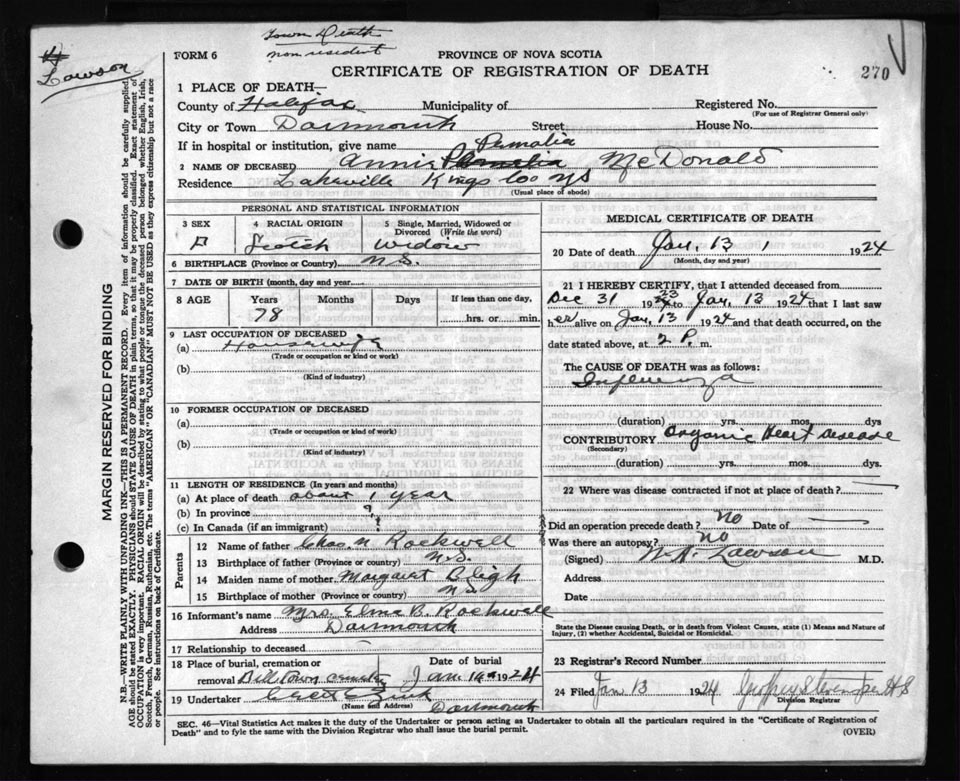 Town Death
non resident
4
Lawson
FORM 6
PROVINCE OF NOVA SCOTIA
CERTIFICATE OF REGISTRATION OF DEATH
270
1 PLACE OF DEATH—
County of Halifax Municipality of Registered No.
(For use of Registrar General only)
City or Town Darmouth Street House No.
If in hospital or institution, give name
Pemalia
2 NAME OF DECEASED Annie McDonald
Residence Lakeville Kings Co. NS
(Usual place of abode)
PERSONAL AND STATISTICAL INFORMATION
3 SEX 4 RACIAL ORIGIN 5 Single, Married, Widowed or Divorced (Write the word)
Scotch Widow
6 BIRTHPLACE (Province or Country) N.S.
7 DATE OF BIRTH (month, day and year)
8 AGE Years Months Days If less than one day,
78 hrs. or min.
9 LAST OCCUPATION OF DECEASED
(a) Housewife
(Trade or occupation or kind of work)
(b)
(Kind of industry)
10 FORMER OCCUPATION OF DECEASED
(a)
(Trade or occupation or kind of work)
(b)
(Kind of industry)
11 LENGTH OF RESIDENCE (In years and months)
(a) At place of death about 1 year
(b) In province ?
(c) In Canada (if an immigrant)
Parents
12 Name of father Chas. N Rockwell
13 Birthplace of father (Province or Country) N.S.
14 Maiden name of mother Margaret Bligh
15 Birthplace of mother (Province or Country) N.S.
16 Informant's name Mrs. Elma B. Rockwell
Address Darmouth
17 Relationship to deceased
18 Place of burial, cremation or removal Billtown cemetery Date of burial Jan 16th 1924
19 Undertaker
(Name and Address) Dartmouth
MEDICAL CERTIFICATE OF DEATH
20 Date of death Jan. 13, 1924
(Month, day and year)
21 I HEREBY CERTIFY, that I attended deceased from
Dec 31 1923 to Jan. 13 1924 that I last saw
her alive on Jan. 13 1924 and that death occurred, on the
date stated above, at 2 P. m.
The CAUSE OF DEATH was as follows:
Influenza
(duration) yrs. mos. dys
CONTRIBUTORY Organic Heart Disease
(Secondary)
(duration) yrs. mos. dys.
22 Where was disease contracted if not at place of death?
Did an operation precede death? No Date of
Was there an autopsy? No
(Signed) Lawson M.D.
Address
Date
State the Disease causing Death, or in death from Violent Causes, state (1) Means and Nature of Injury, (2) whether Accidental, Suicidal or Homicidal.
23 Registrar's Record Number
24 Filed Jan 13 1924
Division Registrar
SEC. 46—Vital Statistics Act makes it the duty of the Undertaker or person acting as Undertaker to obtain all the particulars required in the "Certificate of Registration of
Death" and to fyle the same with the Division Registrar who shall issue the burial permit. (OVER)
MARGIN RESERVED FOR BINDING
N.B.—WRITE PLAINLY WITH UNFADING INK—THIS IS A PERMANENT RECORD. Every item of information should be carefully supplied.
AGE should be stated EXACTLY. PHYSICIANS should STATE CAUSE OF DEATH in plain terms, so that it may be properly classified. Exact statement of
OCCUPATION is very important. RACIAL ORIGIN will be described by stating to what people or tongue the deceased person belonged whether English, Irish,
Scotch, French, German, Russian, Ruthenian, etc. The terms "AMERICAN" OR "CANADIAN" MUST NOT BE USED as they express citizenship but not a race
or people. See instructions on back of Certificate.